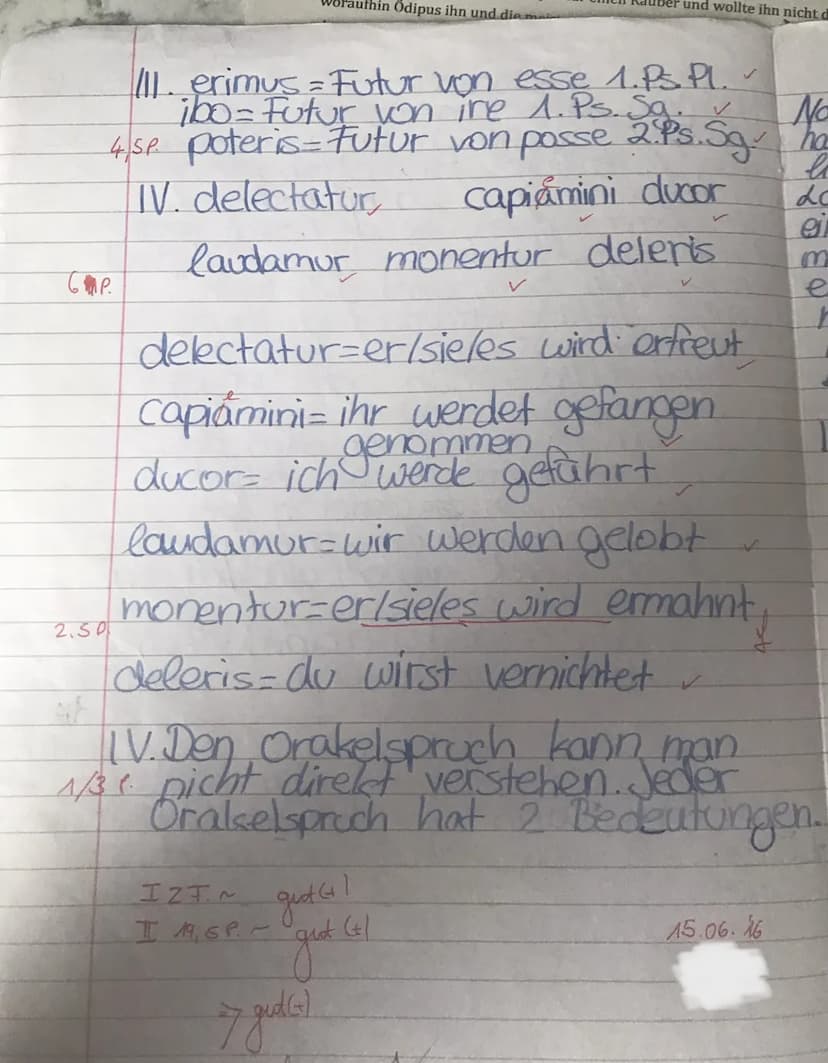 woraufhin Ödipus ihn und die
Räuber und wollte ihn nicht
III. erimus = Futur von esse 1.Ps.Pl.
ibo = Futur von ire 1.Ps.Sg.
4,5P. poteris = Futur von posse 2.Ps.Sg.
IV. delectatur capiamini ducor
e
laudamur monentur deleris
6 P.
delectatur = er/sie/es wird erfreut
capiamini = ihr werdet gefangen
e
genommen
ducor = ich werde geführt
laudamur = wir werden gelobt
monentur = er/sie/es wird ermahnt
f
deleris = du wirst vernichtet
IV. Den Orakelspruch kann man
1/3 P. nicht direkt verstehen. Jeder
Orakelspruch hat 2 Bedeutungen.
I 2 F. ~ gut(+)
II 19,5 P. ~ gut (+)
15.06.16
⇒ gut(+)